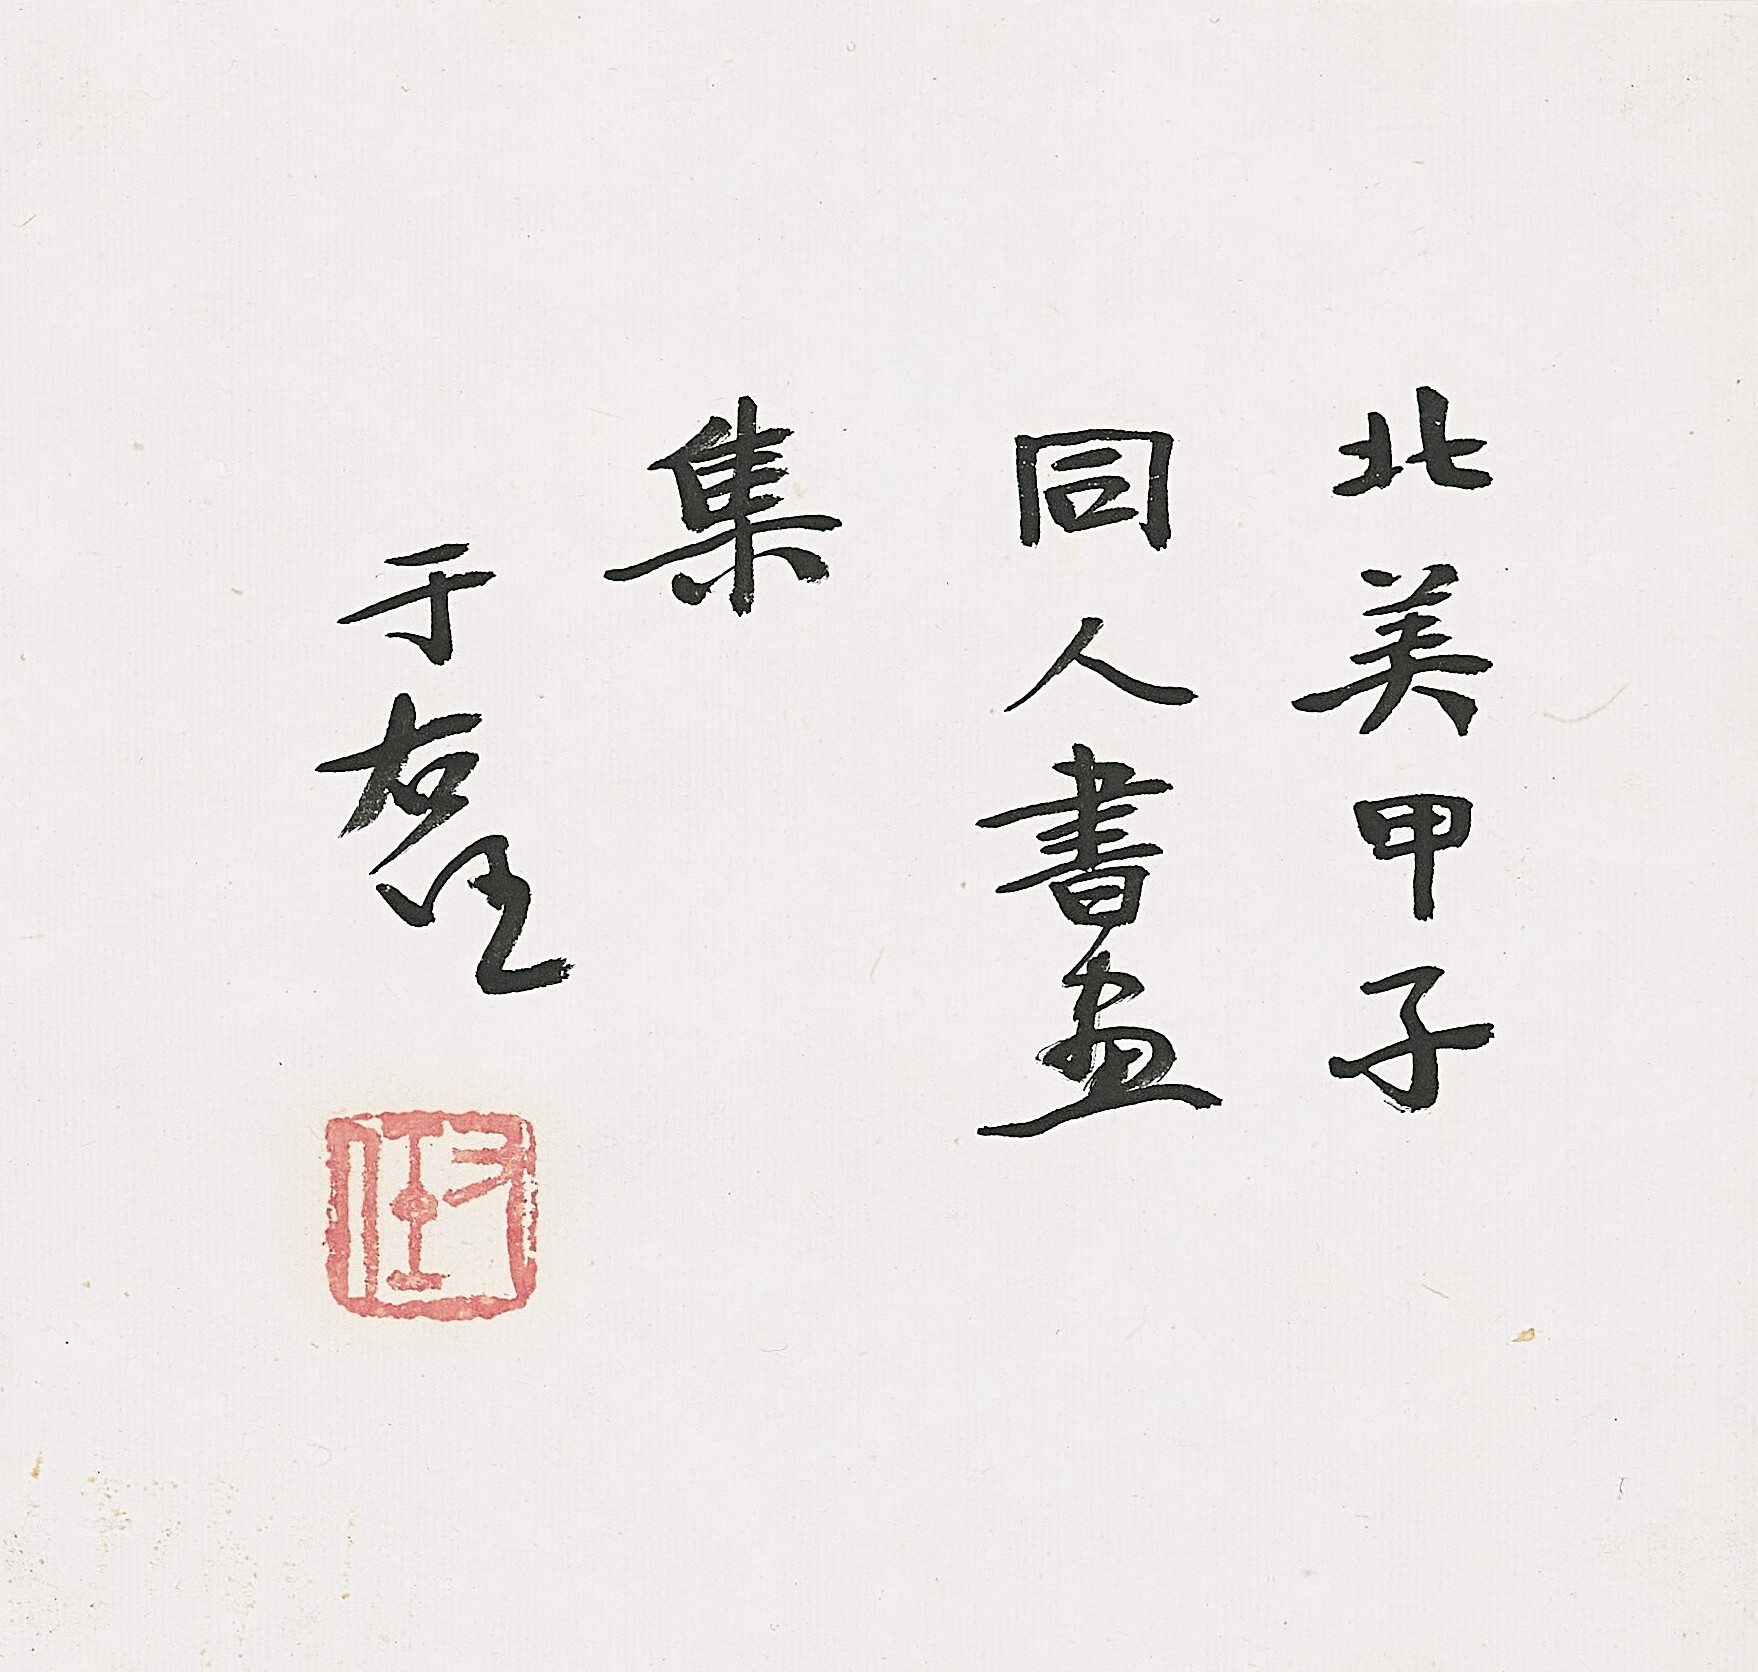 北美甲子
同人書画
集
于右任
右任